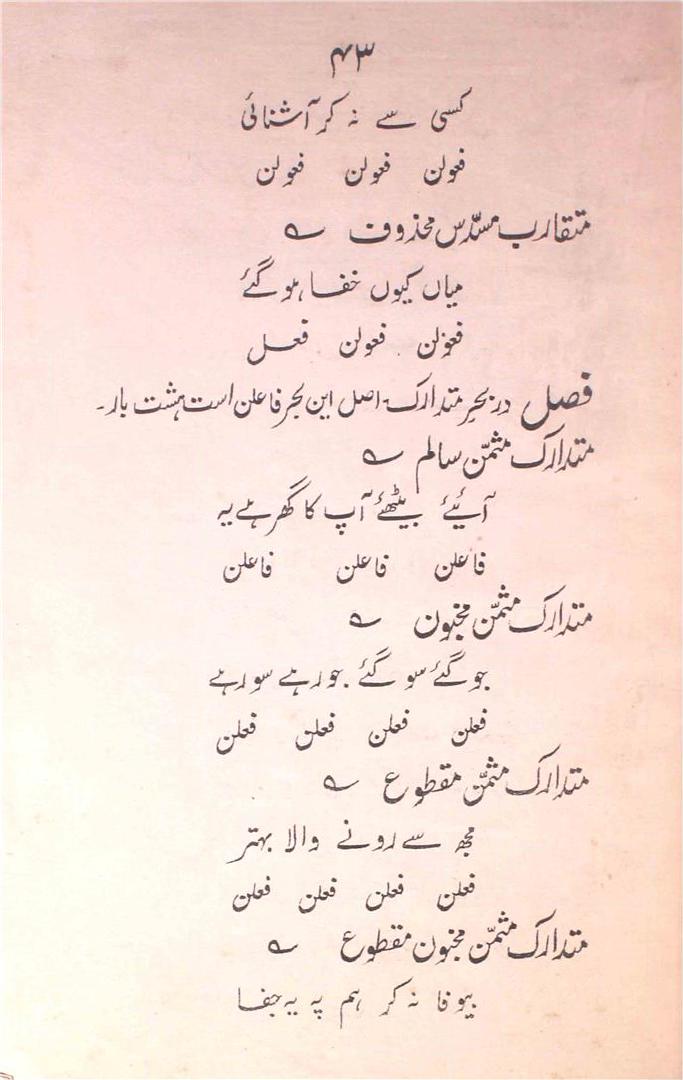 ۴۳
کسی سے نہ کر آشنائی
فعولن فعولن فعولن
متقارب مسدّس محذوف ؎
میاں کیوں خفا ہو گئے
فعولن فعولن فعل
فصل در بحر متدارک۔ اصل این بحر فاعلن است ہشت بار۔
متدارک مثمّن سالم ؎
آئیے بیٹھئے آپ کا گھر ہے یہ
فاعلن فاعلن فاعلن
متدارک مثمّن مخبون ؎
جو گئے سو گئے جو رہے سو رہے
فعلن فعلن فعلن فعلن
متدارک مثمّن مقطوع ؎
مجھ سے رونے والا بہتر
فعلن فعلن فعلن فعلن
متدارک مثمّن مخبون مقطوع ؎
بیوفا نہ کر ہم پہ یہ جفا